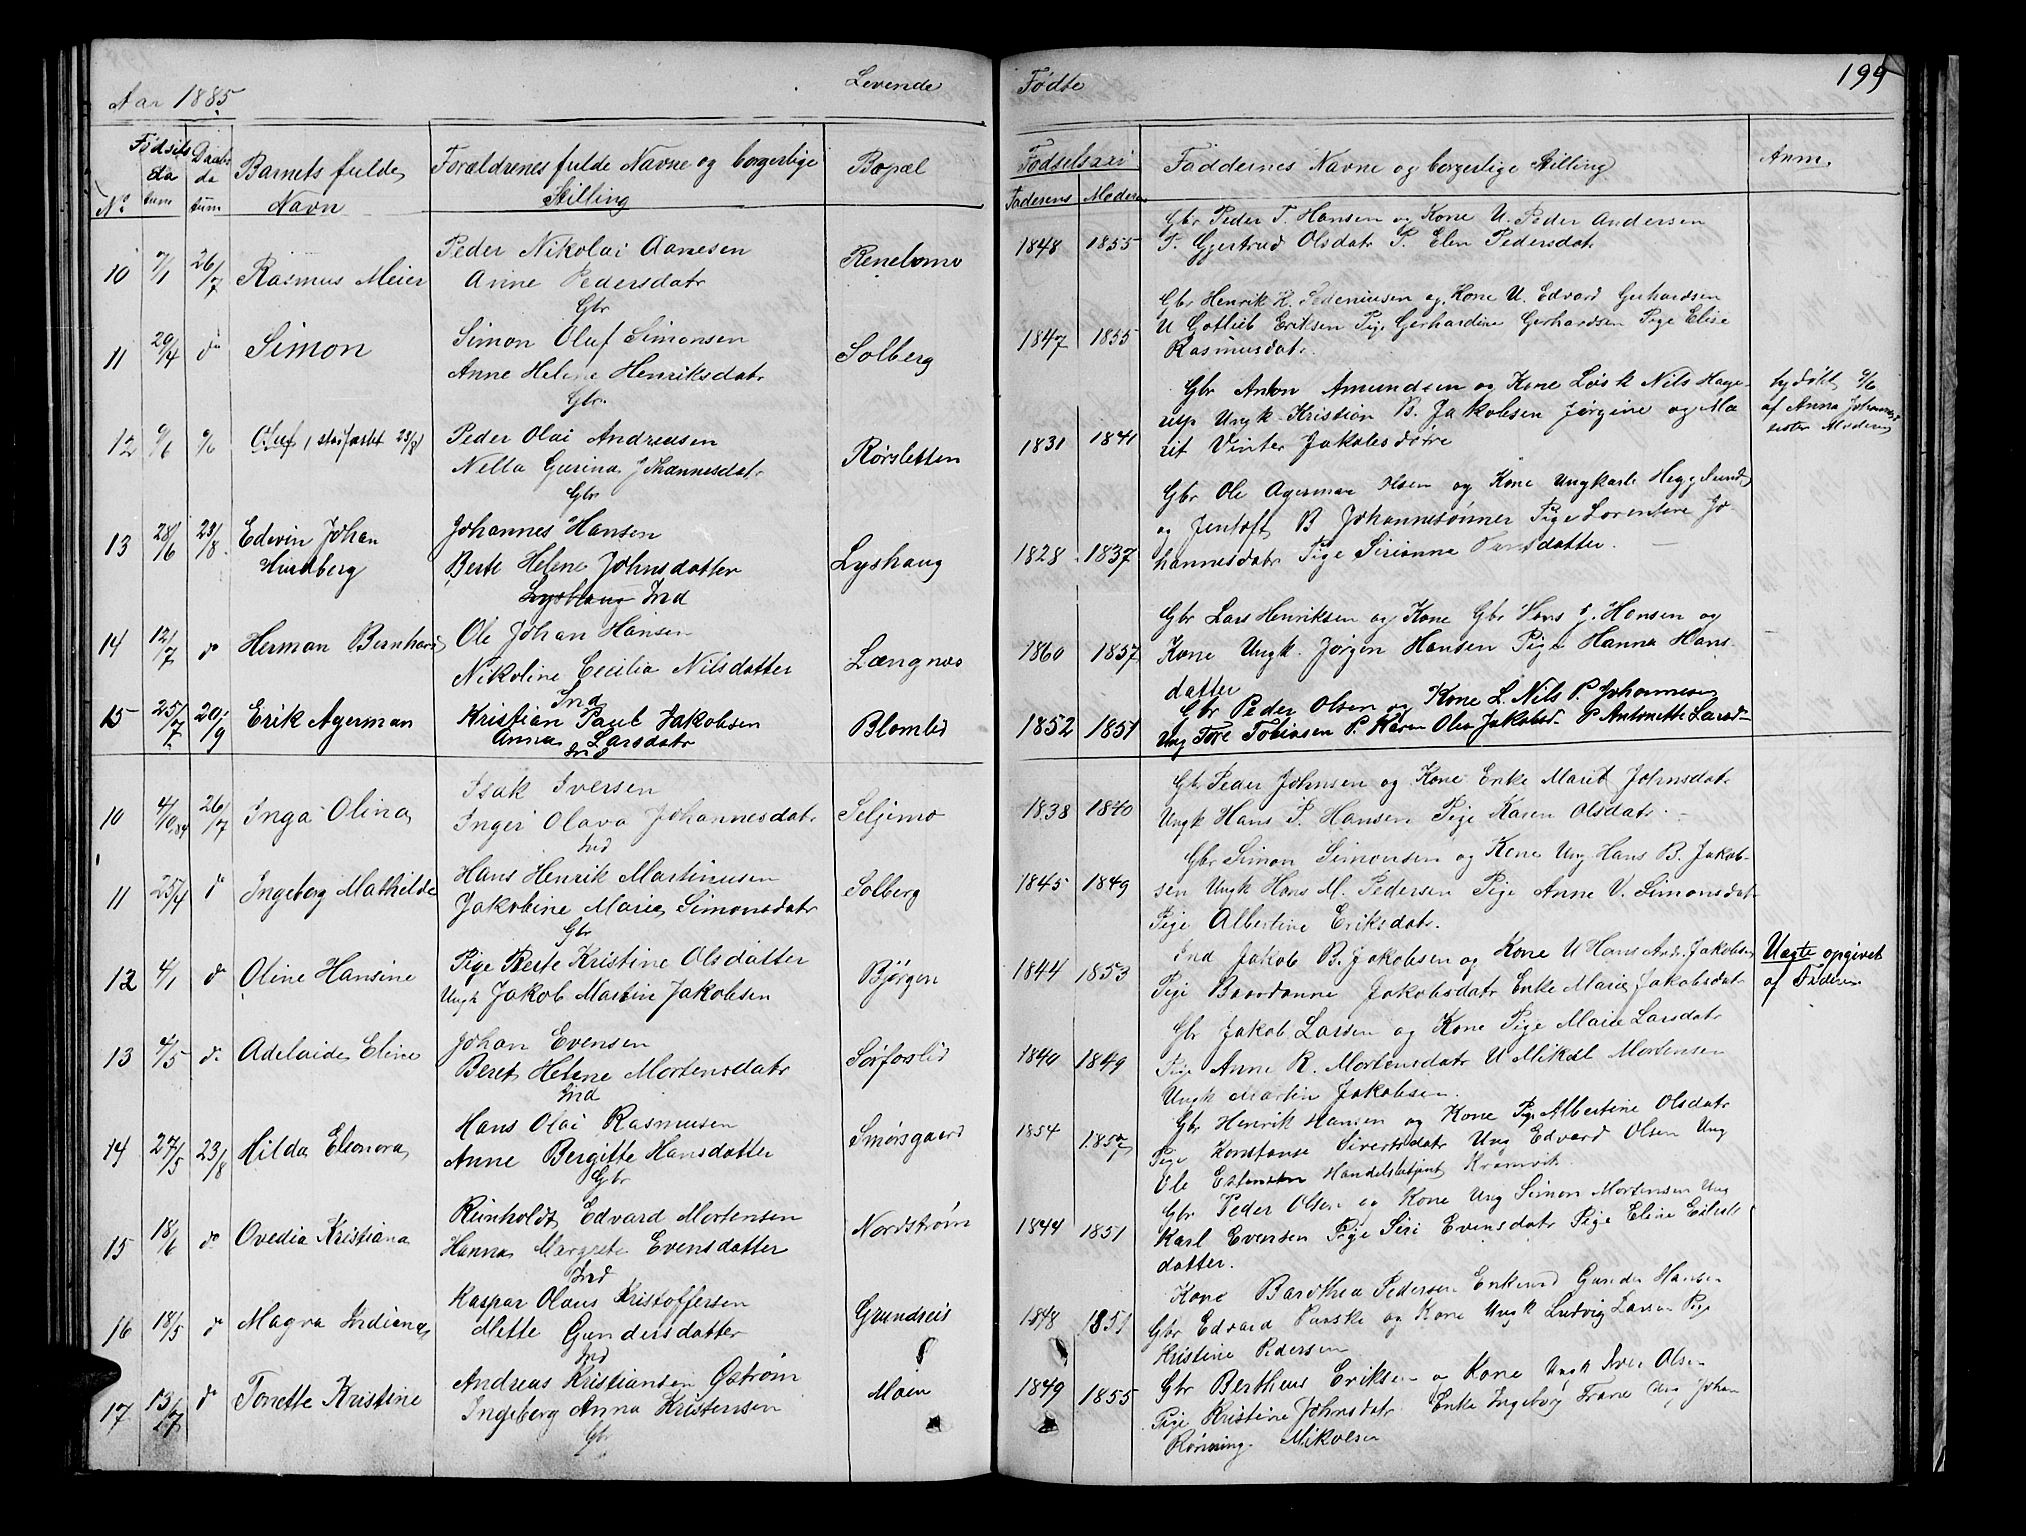 Aar 1885.
Levende
Fødte
199
No
Fødsels da tum
Daabs da tum
Barnets fulde Navn
Forældrenes fulde Navne og borgerlige Stilling
Bopæl
Fødselsaar
Faderens
Moderens
Faddernes Navne og borgerlige Stilling
Anm.
10 7/1 26/7 Rasmus Meier
Peder Nikolai Aanesen
Anne Pedersdatr
Gbr
Renelomo
1848 1855
Gbr Peder T. Hansen og Kone U. Peder Andersen
P. Gjertrud Olsdatr P. Elen Pedersdatr
11 29/4 do Simon
Simon Oluf Simonsen
Anne Helene Henriksdatr
Gbr.
Solberg
1847 1855
Gbr Henrik K. Pedeniusen og Kone U. Edvard Gerhardsen
U Gotlieb Eriksen Pige Gerhardine Gerhardsen Pige Elise
Rasmusdatr.
12 9/6 9/6 Oluf, stadfæstet 23/8
Peder Olai Andreasen
Nella Gurina Johannesdatr
Gbr
Rørsletten
1831 1841
Gbr Anton Amundsen og Kone Løsk Nils Hage-
rup Ungk. Kristian B. Jakobsen Jørgine og Ma
rit Vinter Jakobsdøtre
hjdøbt 9/6
af Anna Johannes
søster Moderen
13 28/6 23/8. Edvin Johan
Hundberg
Johannes Hansen
Berte Helene Johnsdatter
Lyshaug Ind
Lyshaug
1828 1837
Gbr Ole Agerman Olsen og Kone Ungkarle Hegelund
og Jentoft B Johannesønner Pige Lorentine Jo-
hannesdatr Pige Sirianna Larsdatter.
14 12/7 do Herman Bernhard
Ole Johan Hansen
Nikoline Cecilia Nilsdatter
Ind
Længnes
1860 1857
Gbr Lars Henriksen og Kone Gbr Hans J. Hansen og
Kone Ungk. Jørgen Hansen Pige Hanna Hans-
datter
15 25/7 20/9 Erik Agerman
Kristian Paul Jakobsen
Anna Larsdatr
Ind
Blomlid
1852 1851
Gbr Peder Olsen og Kone L. Nils P. Johannesen
Ung Tore Tobiasen P. Karen Olea Jakobsd. P Antonette Larsd-
10 4/10,84 26/7 Inga Olina
Isak Iversen
Inger Olava Johannesdatr
Ind
Seljemo
1838 1840
Gbr Peder Johnsen og Kone Enke Marit Johnsdatr
Ungk Hans P. Hansen Pige Karen Olsdatr.
11 25/4 do Ingeborg Mathilde
Hans Henrik Martinusen
Jakobine Marie Simonsdatr
Gbr
Solberg
1845 1849
Gbr Simon Simonsen og Kone Ung Hans B. Jakob-
sen Ungk Hans M. Pedersen Pige Anne V. Simonsdatr
Pige Albertine Eriksdatr.
12 4/1 do Oline Hansine
Pige Berte Kristine Olsdatter
Ungk Jakob Martin Jakobsen
Bjørgen
1844 1853
Ind Jakob B. Jakobsen og Kone U Hans And. Jakobsen
Pige Baardanne Jakobsdatr Enke Marie Jakobsdatr
Uægte opgivet
af Faderen
13 4/5 do Adelaide Eline
Johan Evensen
Beret Helene Mortensdatr
Ind
Sørfoslid
1840 1849
Gbr Jakob Larsen og Kone Pige Marie Larsdatr
Pige Anne R. Mortensdatr U Mikal Mortensen
Ungk Martin Jakobsen.
14 27/5 23/8 Hilda Eleonora
Hans Olai Rasmusen
Anne Bergitte Hansdatter
Gbr
Smørsgaard
1854 1857
Gbr Henrik Hansen og Kone Pige Albertine Olsdatr
Pige Konstanse Sivertsdatr Ung Edvard Olsen Ung
Ole Estensen Handelsbetjent Kramvik.
15 18/6 do Ovedia Kristiana
Reinholdt Edvard Mortensen
Hanna Margrete Evensdatter
Ind
Nordstrøm
1844 1851
Gbr Peder Olsen og Kone Ung Simon Mortensen Ung
Karl Evensen Pige Siri Evensdatr Pige Eline
datter.
16 18/5 do Magna Indiana
Kaspar Olaus Kristoffersen
Mette Gundersdatter
Ind
Grundreis
1848 1851
Kone Barothea Pedersen Enkemd Gunder Hansen
Gbr Edvard Parske og Kone Ungk Ludvig Larsen Pige
Kristine Pedersen
17 13/7 do Tonette Kristine
Andreas Kristiansen Østrøm
Ingeberg Anna Kristensen
Gbr
Moen
1849 1855
Gbr Bertheus Eriksen og Kone Ungk Iver Olsen
Pige Kristine Johnsdatr Enke Ingeborg Trane Ung Johan
Rønning Mikalsen